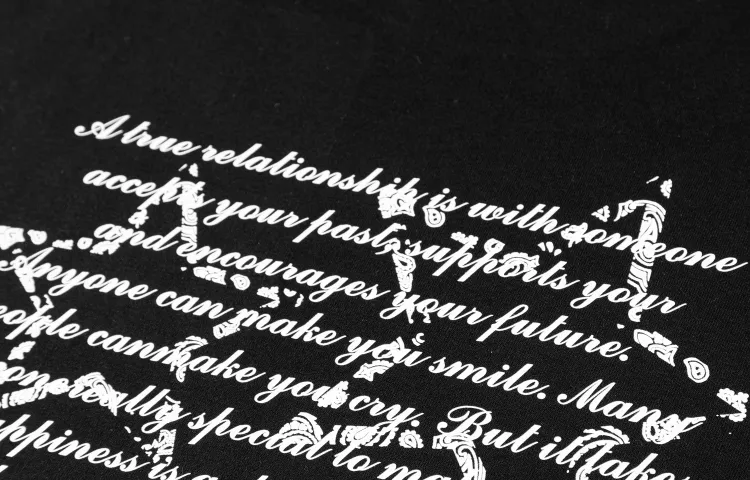 A true relationship is with someone
accepts your past, supports your
and encourages your future.
Anyone can make you smile. Many
people can make you cry. But it take
really special to ma
ppiness is a